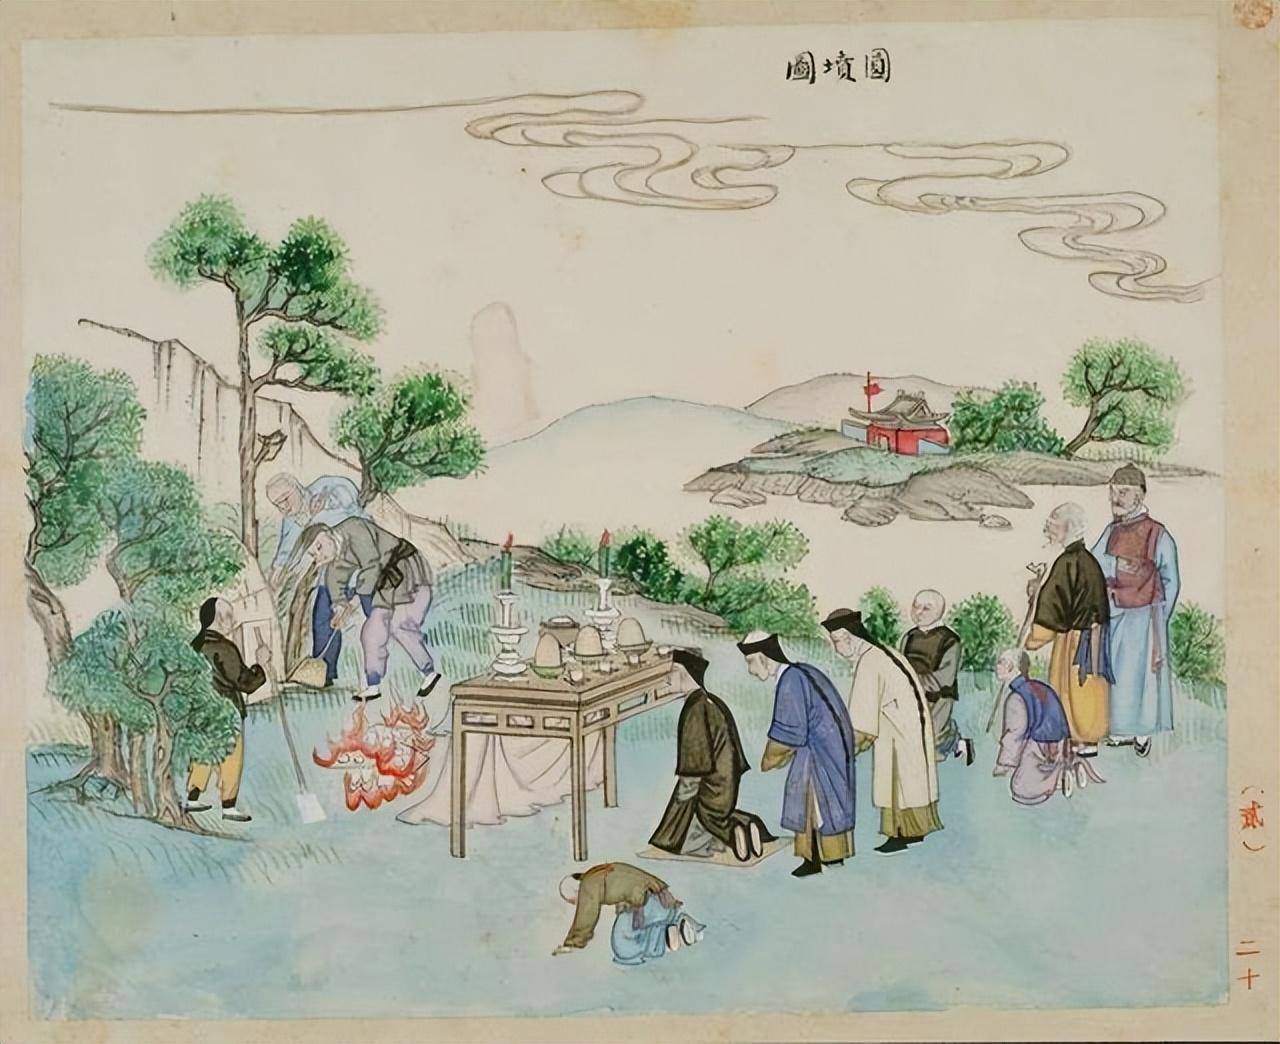 圓墳圖
（貳）
二十